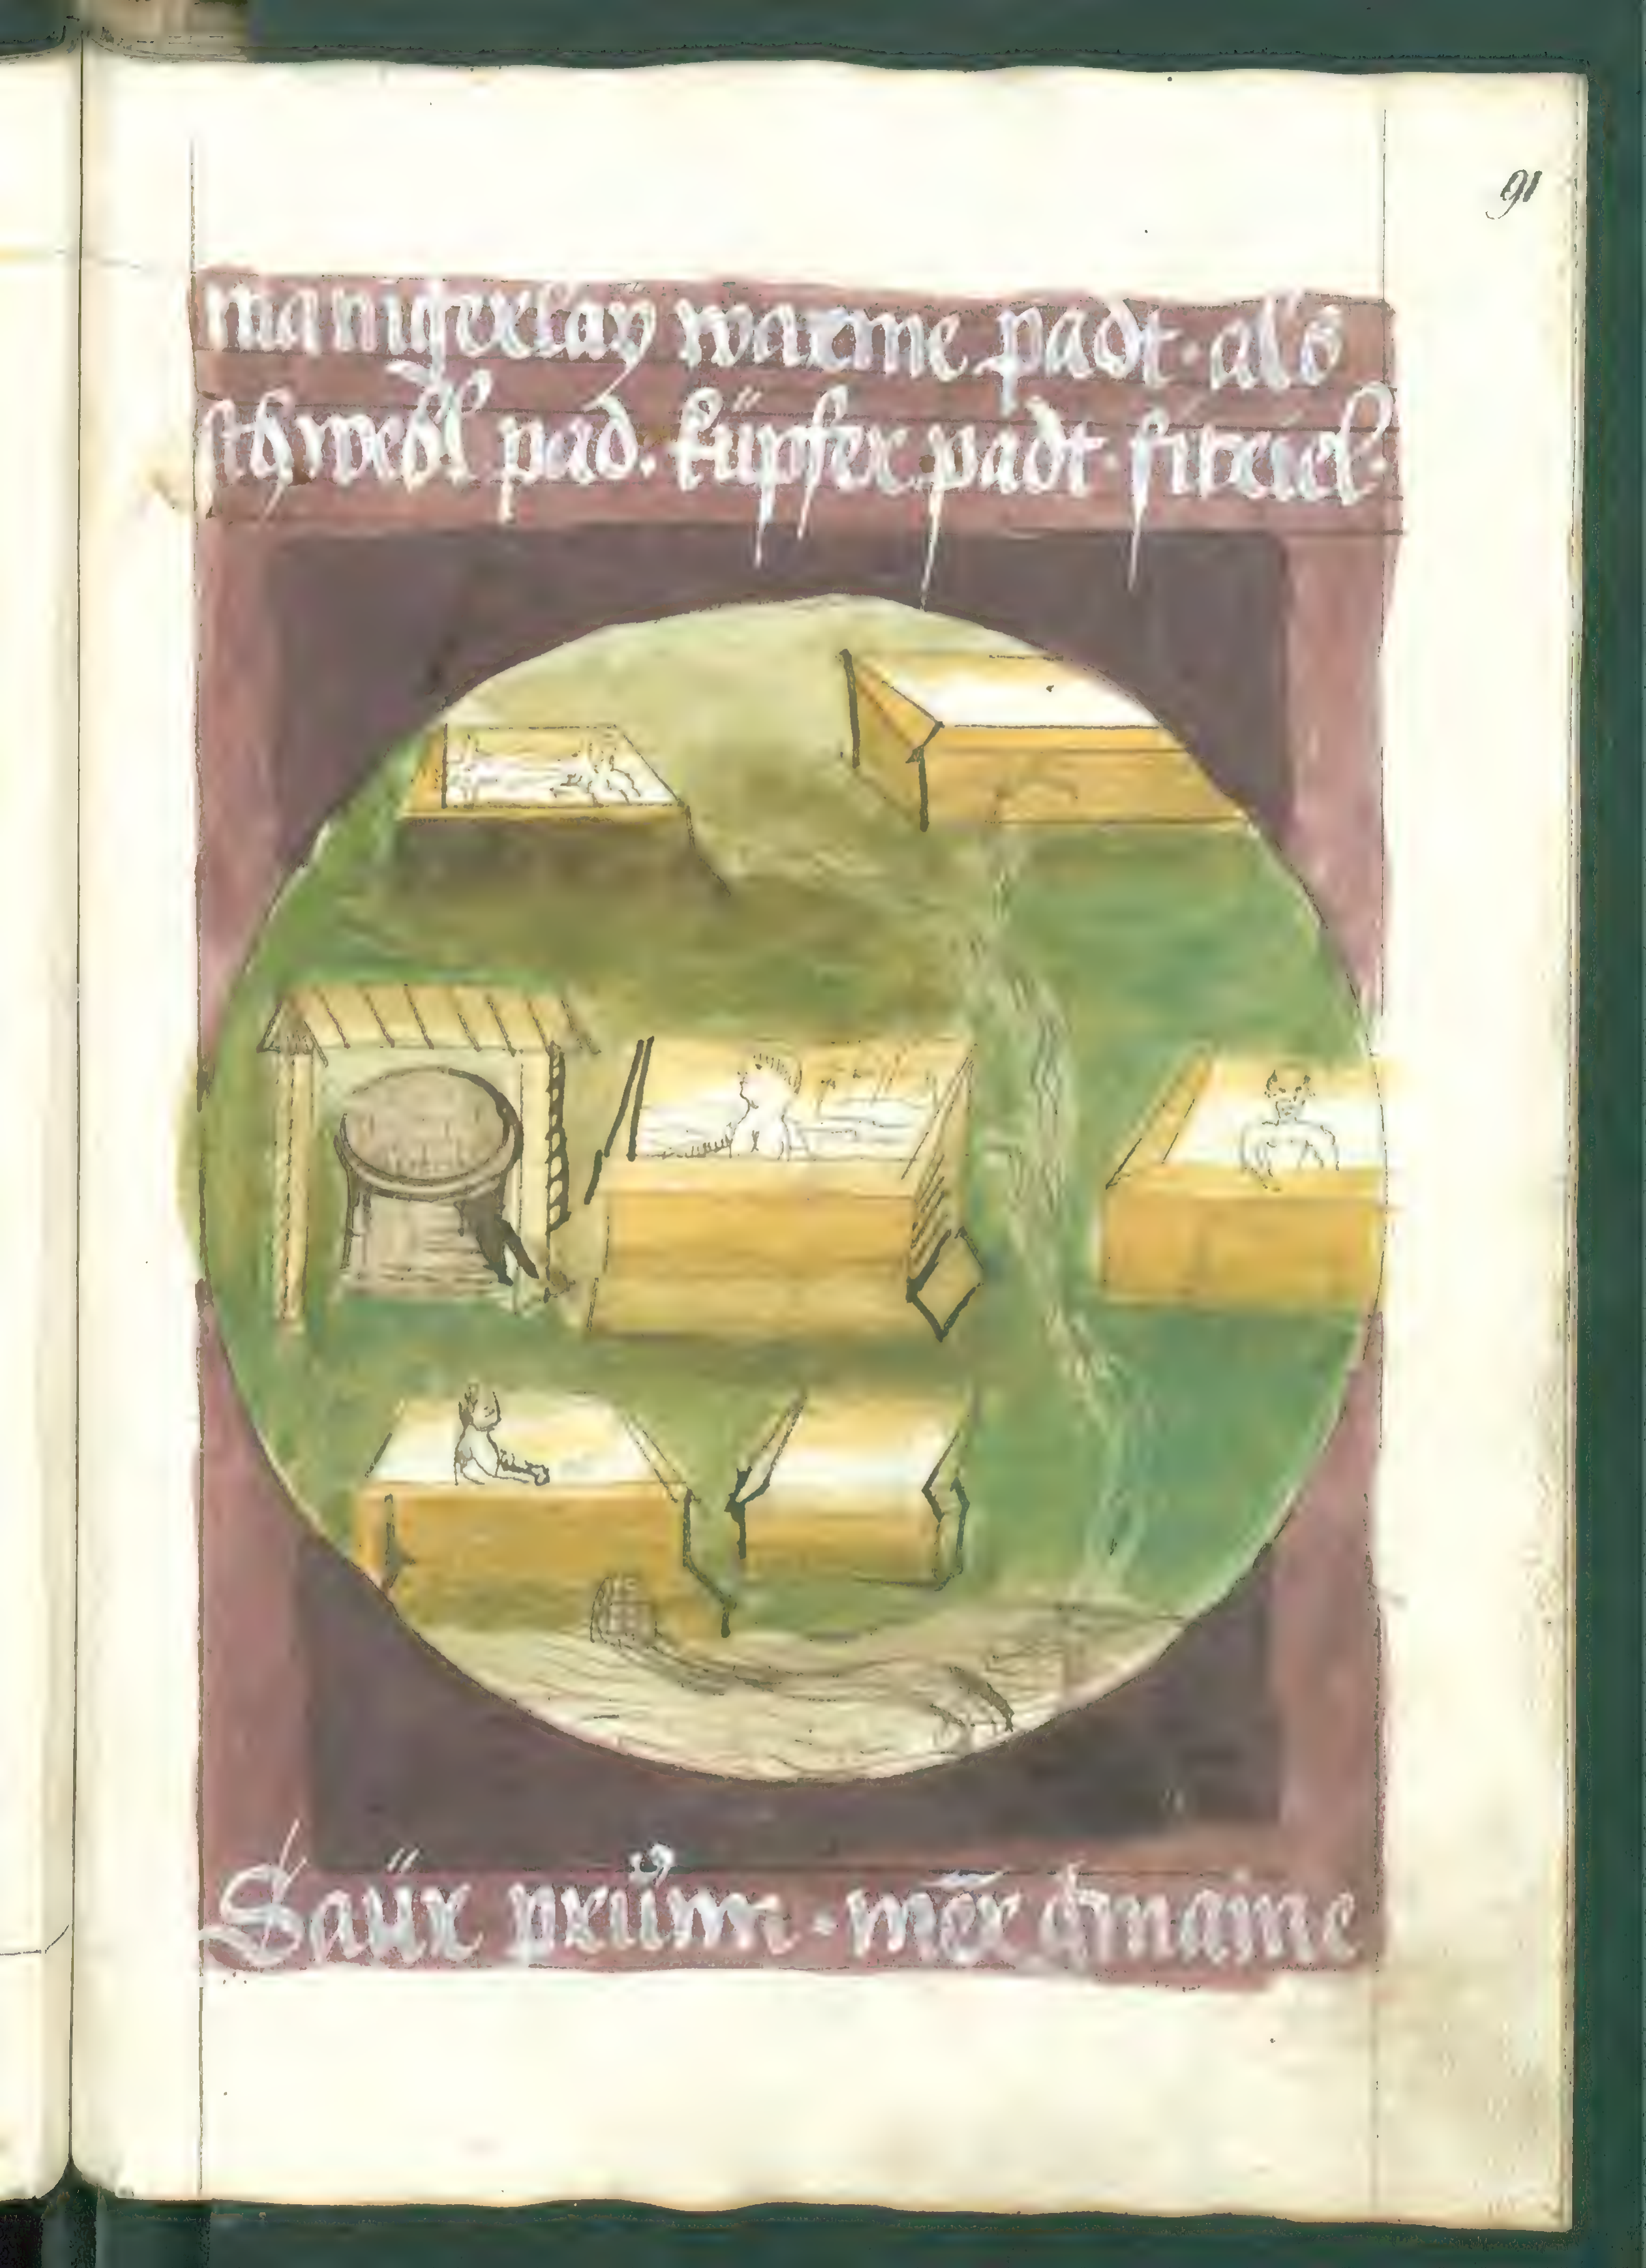 91
manigerlaÿ warme padt · als
schwebl pad. küpfer padt·
Saür prünn · mer gmaine